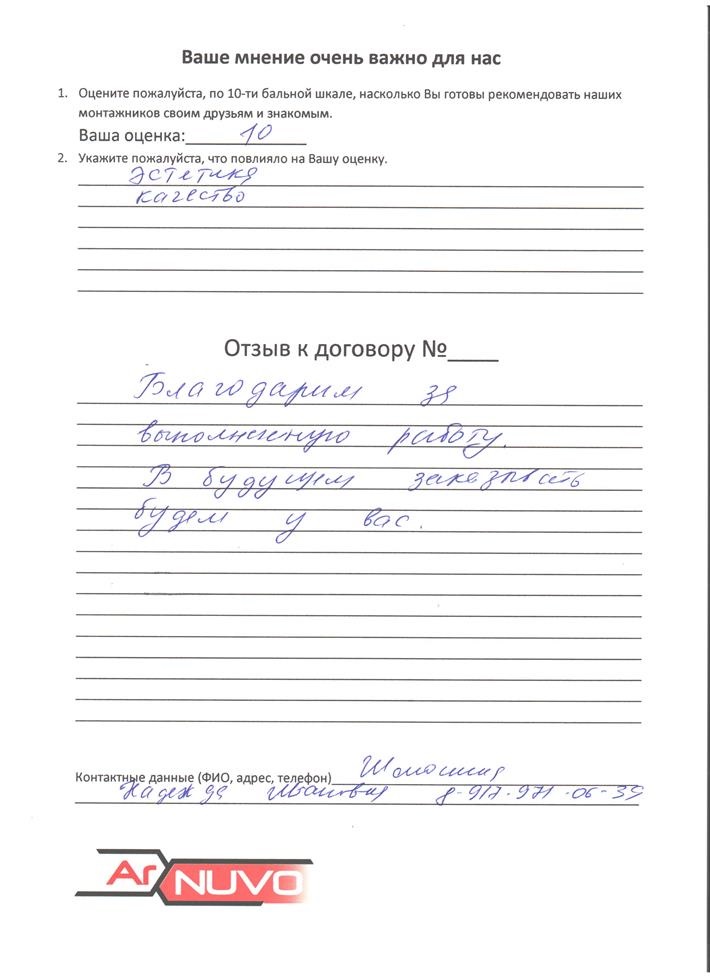 Ваше мнение очень важно для нас
1. Оцените пожалуйста, по 10-ти бальной шкале, насколько Вы готовы рекомендовать наших
монтажников своим друзьям и знакомым.
Ваша оценка: 10
2. Укажите пожалуйста, что повлияло на Вашу оценку.
Эстетика
качество
Отзыв к договору №____
Благодарим за
выполненную работу.
В будущем заказывать
будем у вас.
Контактные данные (ФИО, адрес, телефон)
Надежда Ивановна 8-917-971-06-39
Ar NUVO